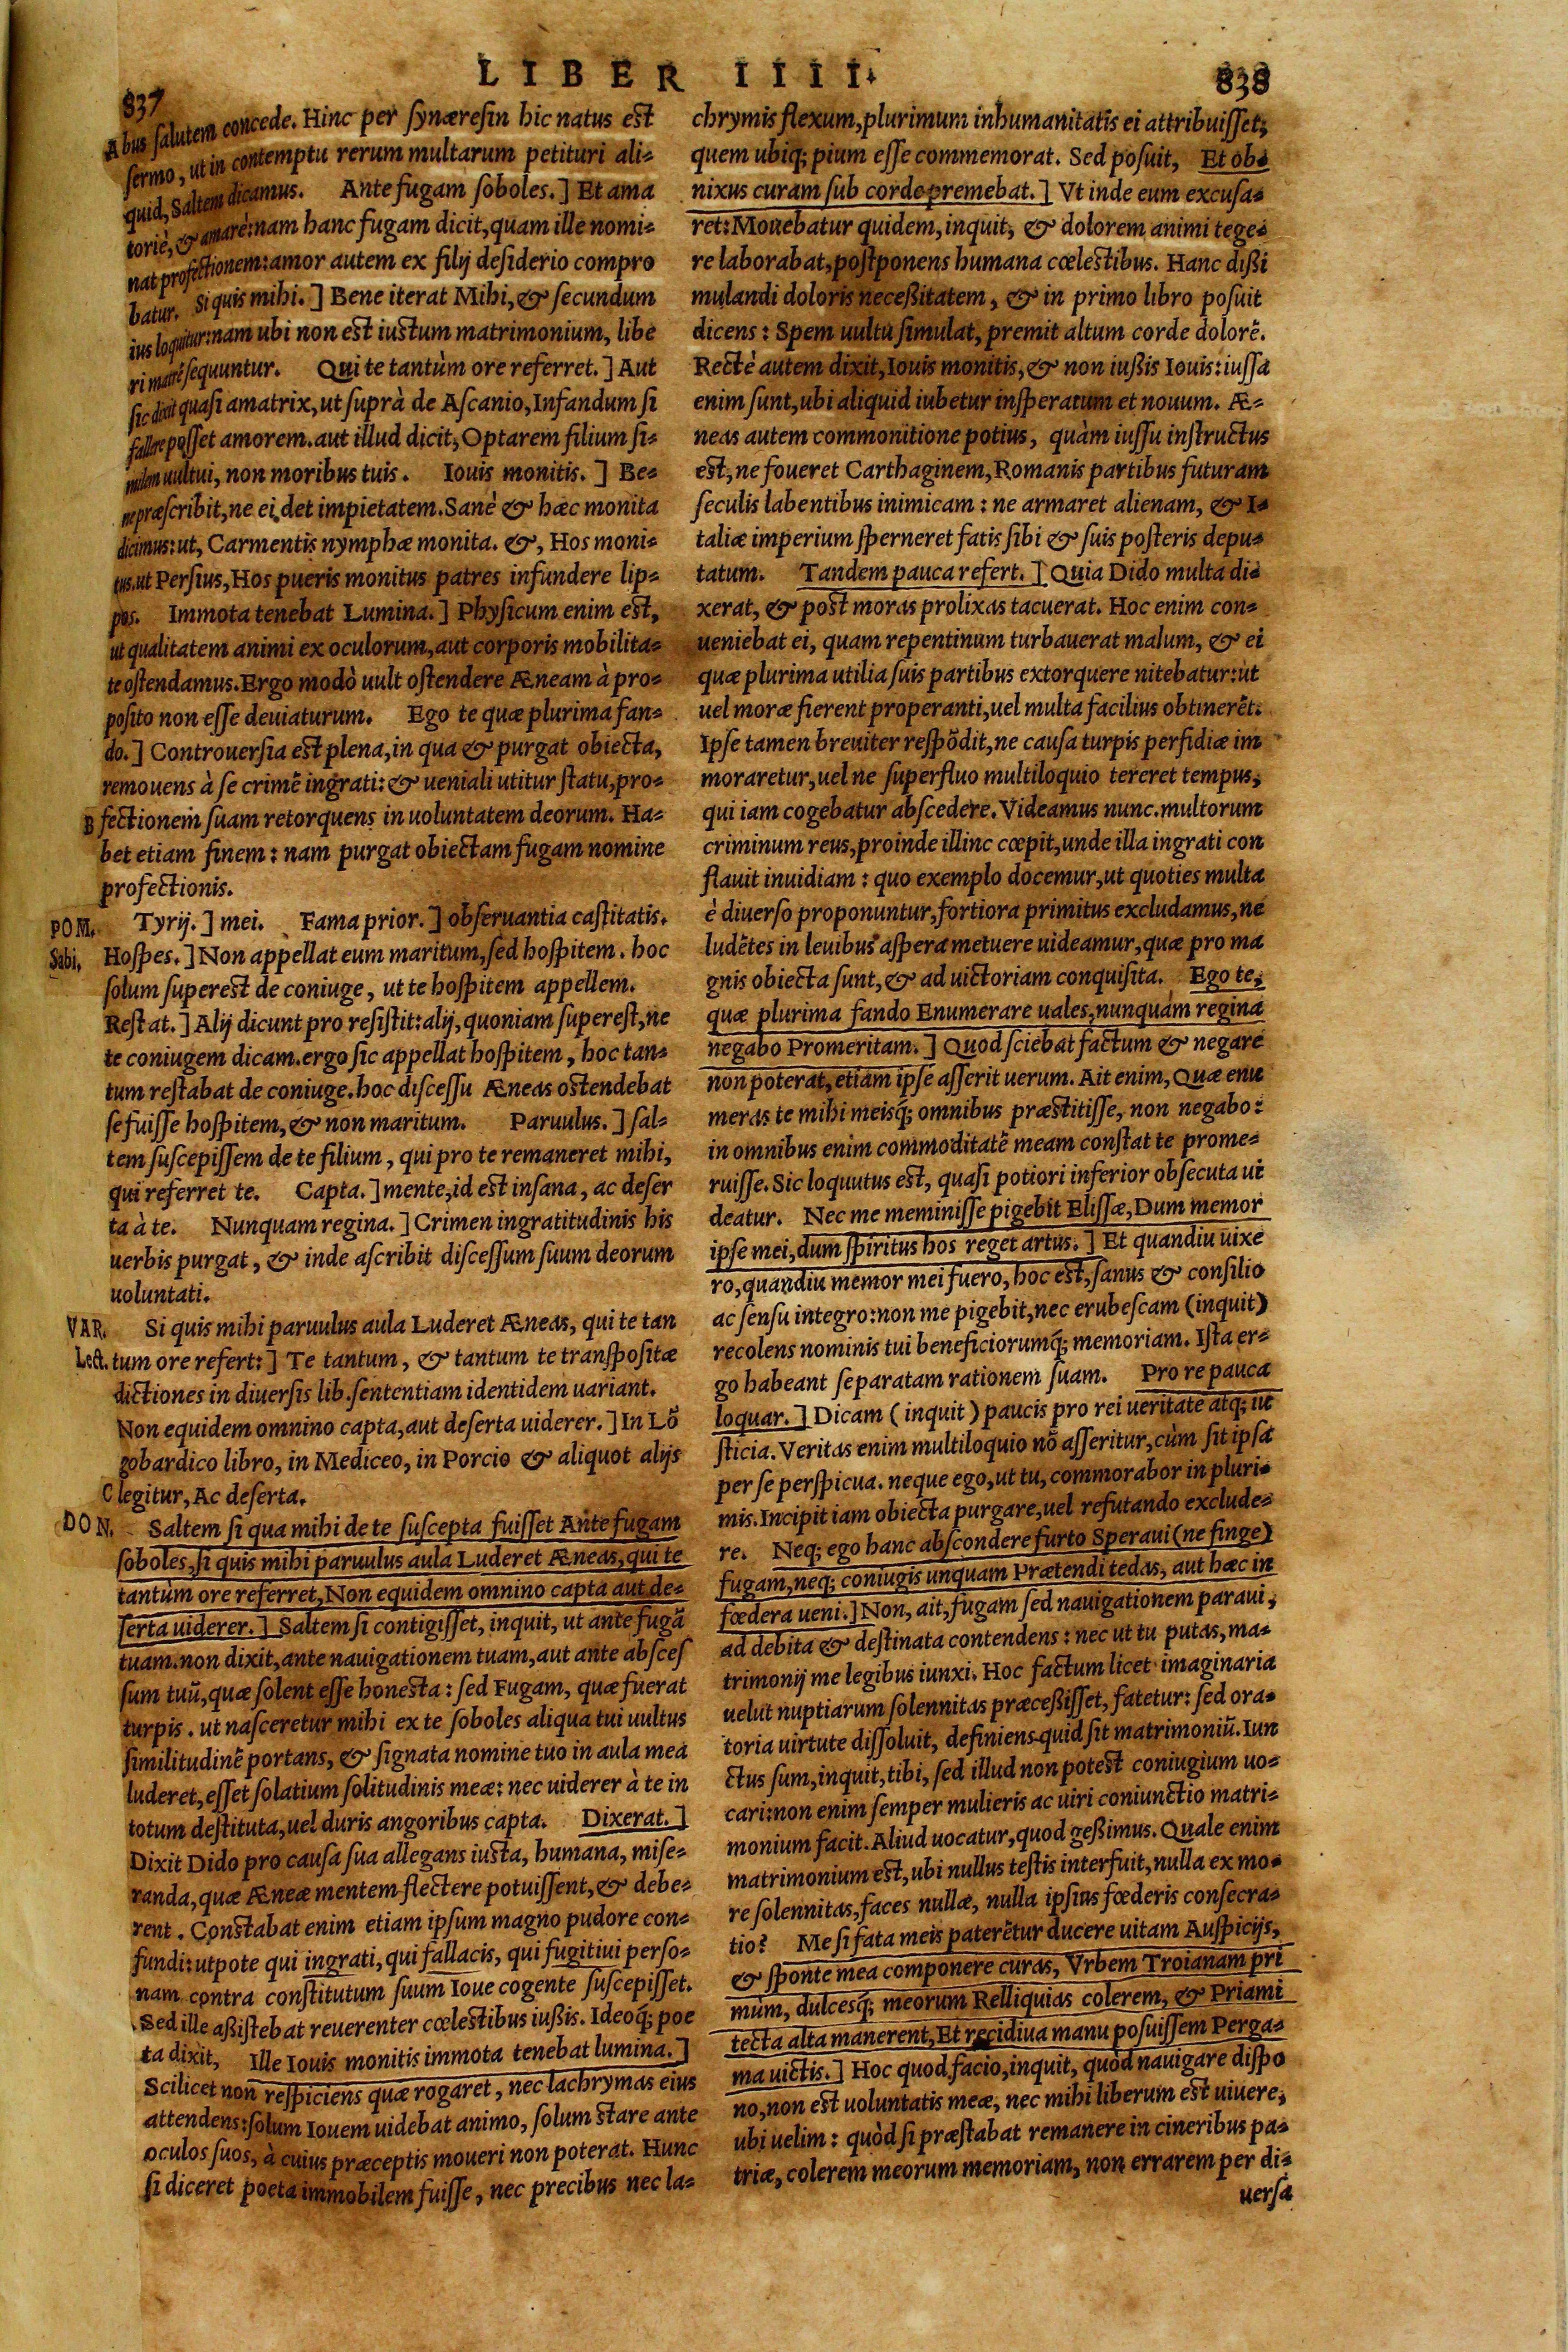 LIBER IIII.
837
A bus salutem concede. Hinc per synæresin hic natus est
sermo, ut in contemptu rerum multarum petituri ali-
quid, Saltem dicamus. Ante fugam soboles.] Et ama
toriè, & amarè: nam hanc fugam dicit, quam ille nomi-
nat profectionem: amor autem ex filij desiderio compro
batur. Si quis mihi.] Bene iterat Mihi, & secundum
ius loquitur: nam ubi non est iustum matrimonium, libe
ri matrē sequuntur. Qui te tantùm ore referret.] Aut
sic dixit quasi amatrix, ut suprà de Ascanio, Infandum si
fallere posset amorem. aut illud dicit, Optarem filium si-
milem uultui, non moribus tuis. Iouis monitis.] Be-
ne præscribit, ne ei det impietatem. Sanè & hæc monita
dicimus: ut, Carmentis nymphæ monita. &, Hos moni-
tus. ut Persius, Hos pueris monitus patres infundere lip-
pos. Immota tenebat Lumina.] Physicum enim est,
ut qualitatem animi ex oculorum, aut corporis mobilita-
te ostendamus. Ergo modò uult ostendere Æneam à pro-
posito non esse deuiaturum. Ego te quæ plurima fan-
do.] Controuersia est plena, in qua & purgat obiecta,
remouens à se crimē ingrati: & ueniali utitur statu, pro-
B fectionem suam retorquens in uoluntatem deorum. Ha-
bet etiam finem: nam purgat obiectam fugam nomine
profectionis.
POM. Tyrij.] mei. Fama prior.] obseruantia castitatis.
Sabi. Hospes.] Non appellat eum maritum, sed hospitem. hoc
solum superest de coniuge, ut te hospitem appellem.
Restat.] Alij dicunt pro resistit: alij, quoniam superest, ne
te coniugem dicam. ergo sic appellat hospitem, hoc tan-
tum restabat de coniuge. hoc discessu Æneas ostendebat
se fuisse hospitem, & non maritum. Paruulus.] sal-
tem suscepissem de te filium, qui pro te remaneret mihi,
qui referret te. Capta.] mente, id est insana, ac deser
ta à te. Nunquam regina.] Crimen ingratitudinis his
uerbis purgat, & inde ascribit discessum suum deorum
uoluntati.
VAR. Si quis mihi paruulus aula Luderet Æneas, qui te tan
Lect. tum ore refert:] Te tantum, & tantum te transpositæ
dictiones in diuersis lib. sententiam identidem uariant.
Non equidem omnino capta, aut deserta uiderer.] In Lō
gobardico libro, in Mediceo, in Porcio & aliquot alijs
C legitur, Ac deserta.
DON. Saltem si qua mihi de te suscepta fuisset Ante fugam
soboles, si quis mihi paruulus aula Luderet Æneas, qui te
tantùm ore referret, Non equidem omnino capta aut de-
serta uiderer.] Saltem si contigisset, inquit, ut ante fugā
tuam. non dixit, ante nauigationem tuam, aut ante absces
sum tuū, quæ solent esse honesta: sed Fugam, quæ fuerat
turpis. ut nasceretur mihi ex te soboles aliqua tui uultus
similitudinē portans, & signata nomine tuo in aula mea
luderet, esset solatium solitudinis meæ: nec uiderer à te in
totum destituta, uel duris angoribus capta. Dixerat.]
Dixit Dido pro causa sua allegans iusta, humana, mise-
randa, quæ Æneæ mentem flectere potuissent, & debe-
rent. Constabat enim etiam ipsum magno pudore con-
fundi: utpote qui ingrati, qui fallacis, qui fugitiui perso-
nam contra constitutum suum Ioue cogente suscepisset.
Sed ille aßistebat reuerenter cœlestibus iußis. Ideoq; poe
ta dixit, Ille Iouis monitis immota tenebat lumina.]
Scilicet non respiciens quæ rogaret, nec lachrymas eius
attendens: solum Iouem uidebat animo, solum stare ante
oculos suos, à cuius præceptis moueri non poterat. Hunc
si diceret poeta immobilem fuisse, nec precibus nec la-
838
chrymis flexum, plurimum inhumanitatis ei attribuisset,
quem ubiq; pium esse commemorat. Sed posuit, Et ob-
nixus curam sub corde premebat.] Vt inde eum excusa-
ret: Mouebatur quidem, inquit, & dolorem animi tege-
re laborabat, postponens humana cœlestibus. Hanc dißi
mulandi doloris neceßitatem, & in primo libro posuit
dicens: Spem uultu simulat, premit altum corde dolorē.
Rectè autem dixit, Iouis monitis, & non iußis Iouis: iussa
enim sunt, ubi aliquid iubetur insperatum et nouum. Æ-
neas autem commonitione potius, quàm iussu instructus
est, ne foueret Carthaginem, Romanis partibus futuram
seculis labentibus inimicam: ne armaret alienam, & I-
taliæ imperium sperneret fatis sibi & suis posteris depu-
tatum. Tandem pauca refert.] Quia Dido multa di-
xerat, & post moras prolixas tacuerat. Hoc enim con-
ueniebat ei, quam repentinum turbauerat malum, & ei
quæ plurima utilia suis partibus extorquere nitebatur: ut
uel moræ fierent properanti, uel multa facilius obtinerēt.
Ipse tamen breuiter respōdit, ne causa turpis perfidiæ im
moraretur, uel ne superfluo multiloquio tereret tempus,
qui iam cogebatur abscedere. Videamus nunc. multorum
criminum reus, proinde illinc cœpit, unde illa ingrati con
flauit inuidiam: quo exemplo docemur, ut quoties multa
è diuerso proponuntur, fortiora primitus excludamus, ne
ludētes in leuibus aspera metuere uideamur, quæ pro ma
gnis obiecta sunt, & ad uictoriam conquisita. Ego te,
quæ plurima fando Enumerare uales, nunquàm regina
negabo Promeritam.] Quod sciebat factum & negare
non poterat, etiam ipse asserit uerum. Ait enim, Quæ enu
meras te mihi meisq; omnibus præstitisse, non negabo:
in omnibus enim commoditatē meam constat te prome-
ruisse. Sic loquutus est, quasi potiori inferior obsecuta ui
deatur. Nec me meminisse pigebit Elissæ, Dum memor
ipse mei, dum spiritus hos reget artus.] Et quandiu uixe
ro, quandiu memor mei fuero, hoc est, sanus & consilio
ac sensu integro: non me pigebit, nec erubescam (inquit)
recolens nominis tui beneficiorumq; memoriam. Ista er-
go habeant separatam rationem suam. Pro re pauca
loquar.] Dicam (inquit) paucis pro rei ueritate atq; iu
sticia. Veritas enim multiloquio nō asseritur, cùm sit ipsa
per se perspicua. neque ego, ut tu, commorabor in pluri-
mis. Incipit iam obiecta purgare, uel refutando exclude-
re. Neq; ego hanc abscondere furto Speraui (ne finge)
fugam, neq; coniugis unquam Prætendi tedas, aut hæc in
fœdera ueni.] Non, ait, fugam sed nauigationem paraui,
ad debita & destinata contendens: nec ut tu putas, ma-
trimonij me legibus iunxi. Hoc factum licet imaginaria
uelut nuptiarum solennitas præceßisset, fatetur: sed ora-
toria uirtute dissoluit, definiens quid sit matrimoniū. Iun
ctus sum, inquit, tibi, sed illud non potest coniugium uo-
cari: non enim semper mulieris ac uiri coniunctio matri-
monium facit. Aliud uocatur, quod geßimus. Quale enim
matrimonium est, ubi nullus testis interfuit, nulla ex mo-
re solennitas, faces nullæ, nulla ipsius fœderis consecra-
tio? Me si fata meis paterētur ducere uitam Auspicijs,
& sponte mea componere curas, Vrbem Troianam pri
mùm, dulcesq; meorum Relliquias colerem, & Priami
tecta alta manerent, Et recidiua manu posuissem Perga-
ma uictis.] Hoc quod facio, inquit, quòd nauigare dispo
no, non est uoluntatis meæ, nec mihi liberum est uiuere,
ubi uelim: quòd si præstabat remanere in cineribus pa-
triæ, colerem meorum memoriam, non errarem per di-
uersa